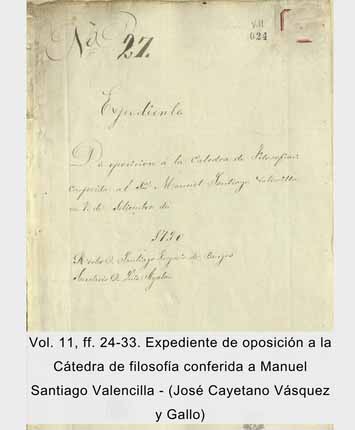 No. 27.
V.11
024
Expediente
De oposicion a la Catedra de Filosofia
conferida al Manuel Santiago Valencilla
en de Setiembre de
Rector D. Santiago de Burgos
Secretario D.
Vol. 11, ff. 24-33. Expediente de oposición a la
Cátedra de filosofía conferida a Manuel
Santiago Valencilla - (José Cayetano Vásquez
y Gallo)